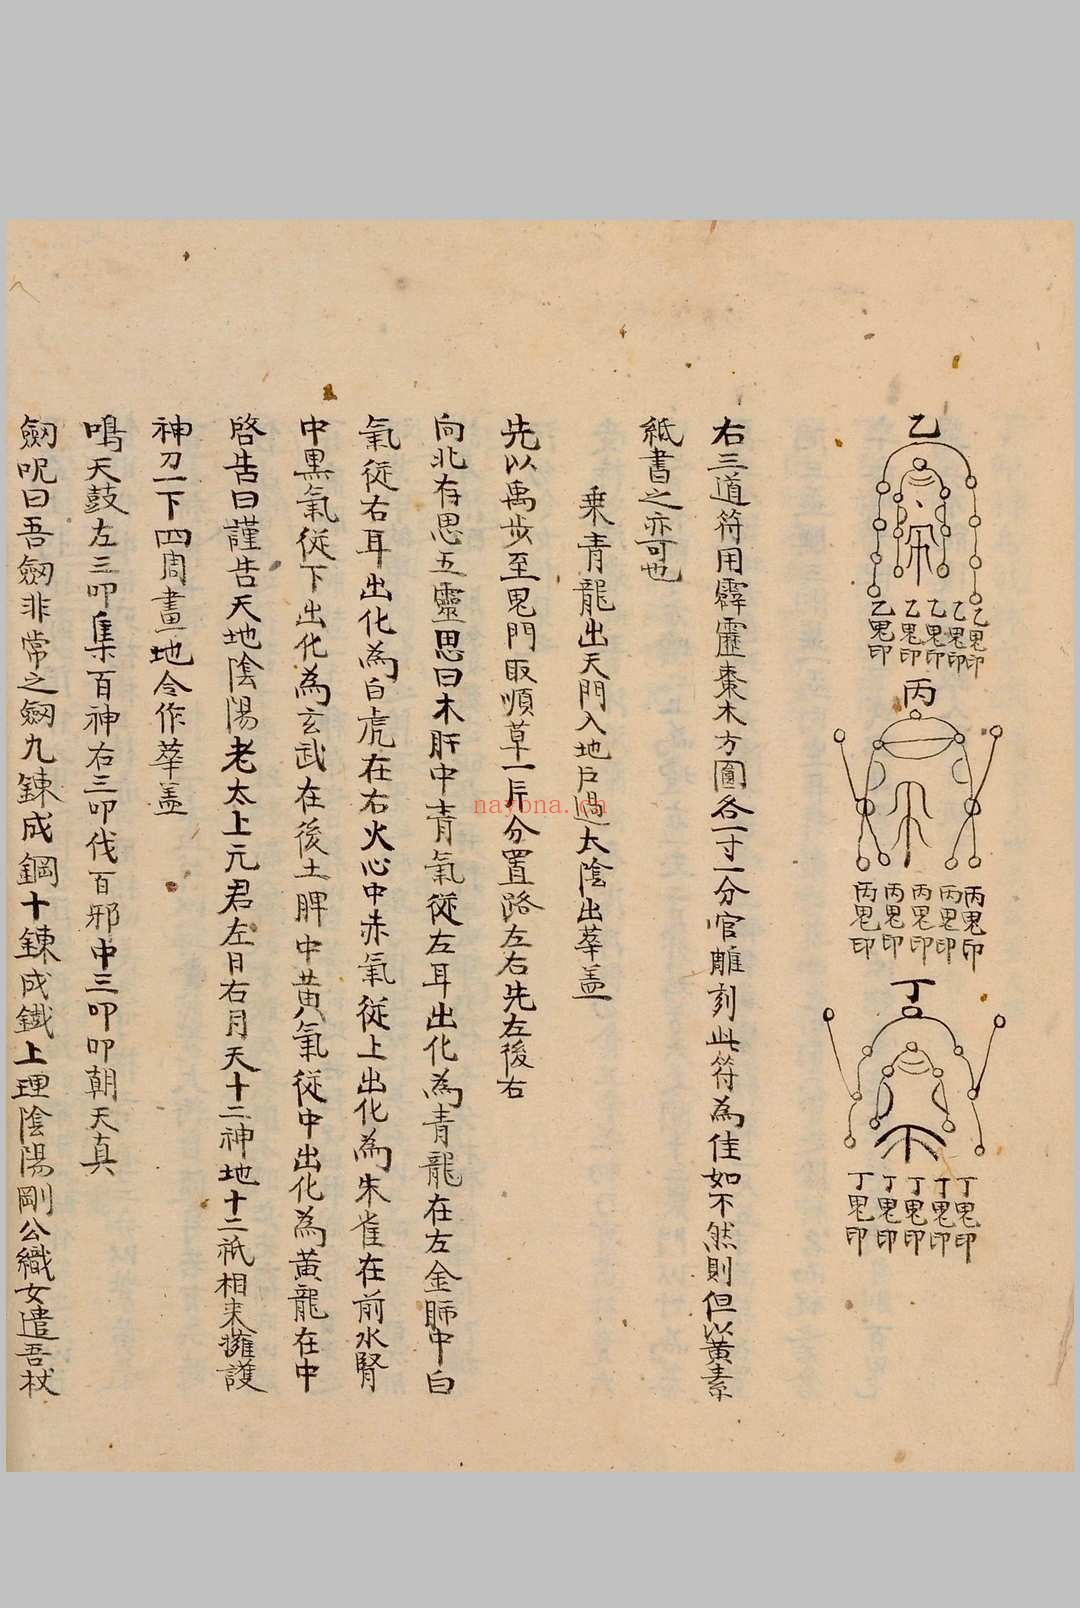 乙
乙鬼印 乙鬼印 乙鬼印 乙鬼印 乙鬼印
丙
丙鬼印 丙鬼印 丙鬼印 丙鬼印 丙鬼印
丁
丁鬼印 丁鬼印 丁鬼印 丁鬼印 丁鬼印
右三道符用霹靂棗木方圓各一寸一分官雕刻此符為佳如不然則但以黃素
紙書之亦可也
乗青龍出天門入地戶過太陰出華盖
先以禹步至鬼門取順草一片分置路左右先左後右
向北存思五靈思曰木肝中青氣從左耳出化為青龍在左金肺中白
氣從右耳出化為白虎在右火心中赤氣從上出化為朱雀在前水腎
中黒氣從下出化為玄武在後土脾中黃氣從中出化為黃龍在中
啓告曰謹告天地陰陽老太上元君左日右月天十二神地十二祇相来擁護
神刀一下四周畫地令作華盖
鳴天鼓左三叩集百神右三叩伐百邪中三叩叩朝天真
劔呪曰吾劔非常之劔九錬成鋼十錬成鐵上理陰陽剛公織女遣吾杖
nayona.cn